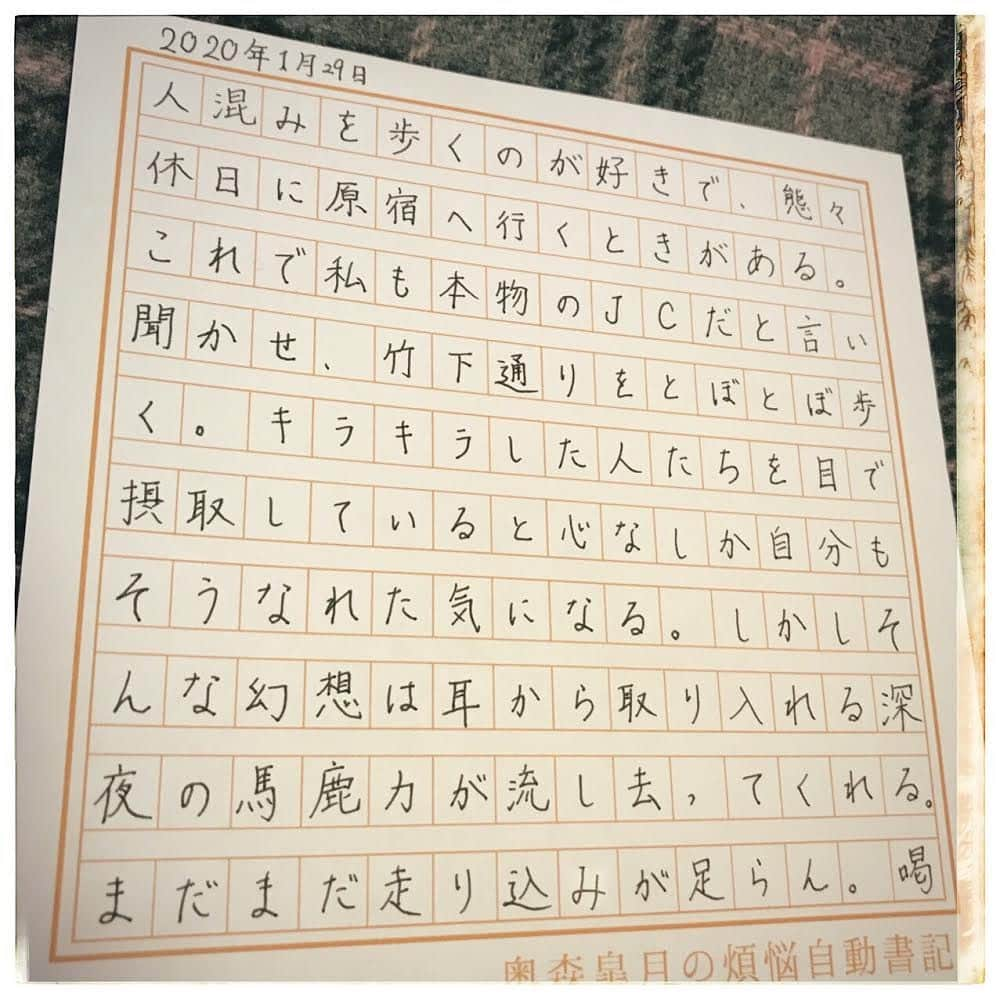 2020年1月29日
人混みを歩くのが好きで、態々
休日に原宿へ行くときがある。
これで私も本物のJCだと言い
聞かせ、竹下通りをとぼとぼ歩
く。キラキラした人たちを目で
摂取していると心なしか自分も
そうなれた気になる。しかしそ
んな幻想は耳から取り入れる深
夜の馬鹿力が流し去ってくれる。
まだまだ走り込みが足らん。喝
奥森皐月の煩悩自動書記